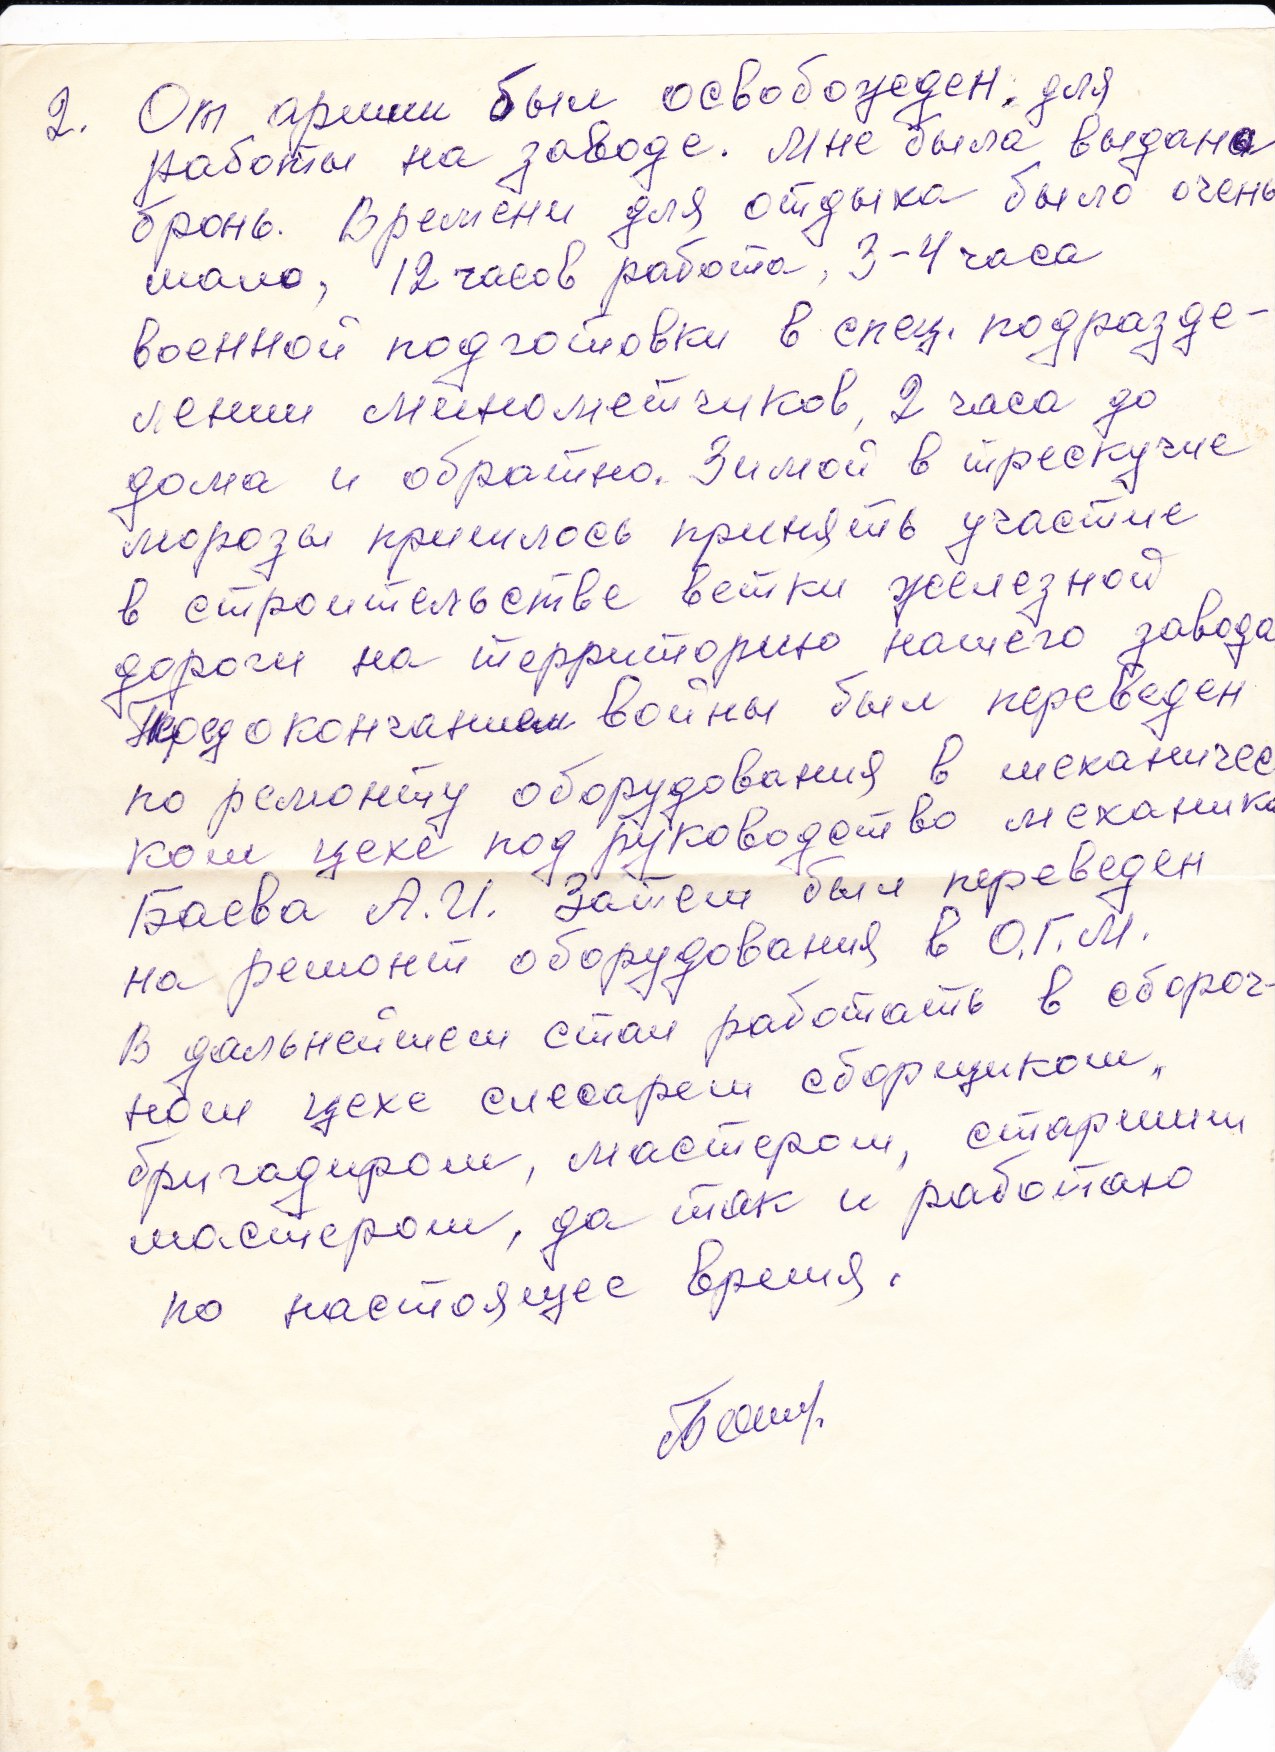 2. От армии был освобожден для
работы на заводе. Мне была выдана
бронь. Времени для отдыха было очень
мало, 12 часов работа, 3-4 часа
военной подготовки в спец. подразде-
лении минометчиков, 2 часа до
дома и обратно. Зимой в трескучие
морозы пришлось принять участие
в строительстве ветки железной
дороги на территорию нашего завода
Перед окончанием войны был переведен
по ремонту оборудования в механичес
ком цехе под руководство механика
Баева А.И. Затем был переведен
на ремонт оборудования в О.Г.М.
В дальнейшем стал работать в сбороч-
ном цехе слесарем сборщиком,
бригадиром, мастером, старшим
мастером, да так и работаю
по настоящее время.